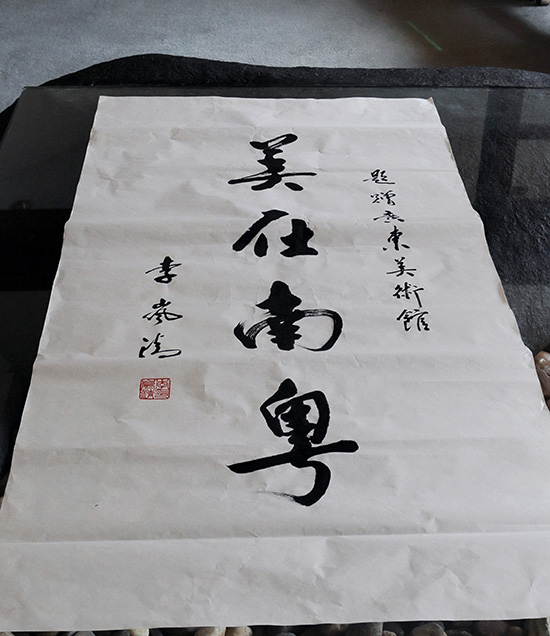 題贈廣東美術館
美在南粤
李嵐清